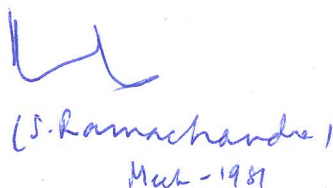 (S. Ramachandra)
Mech - 1981